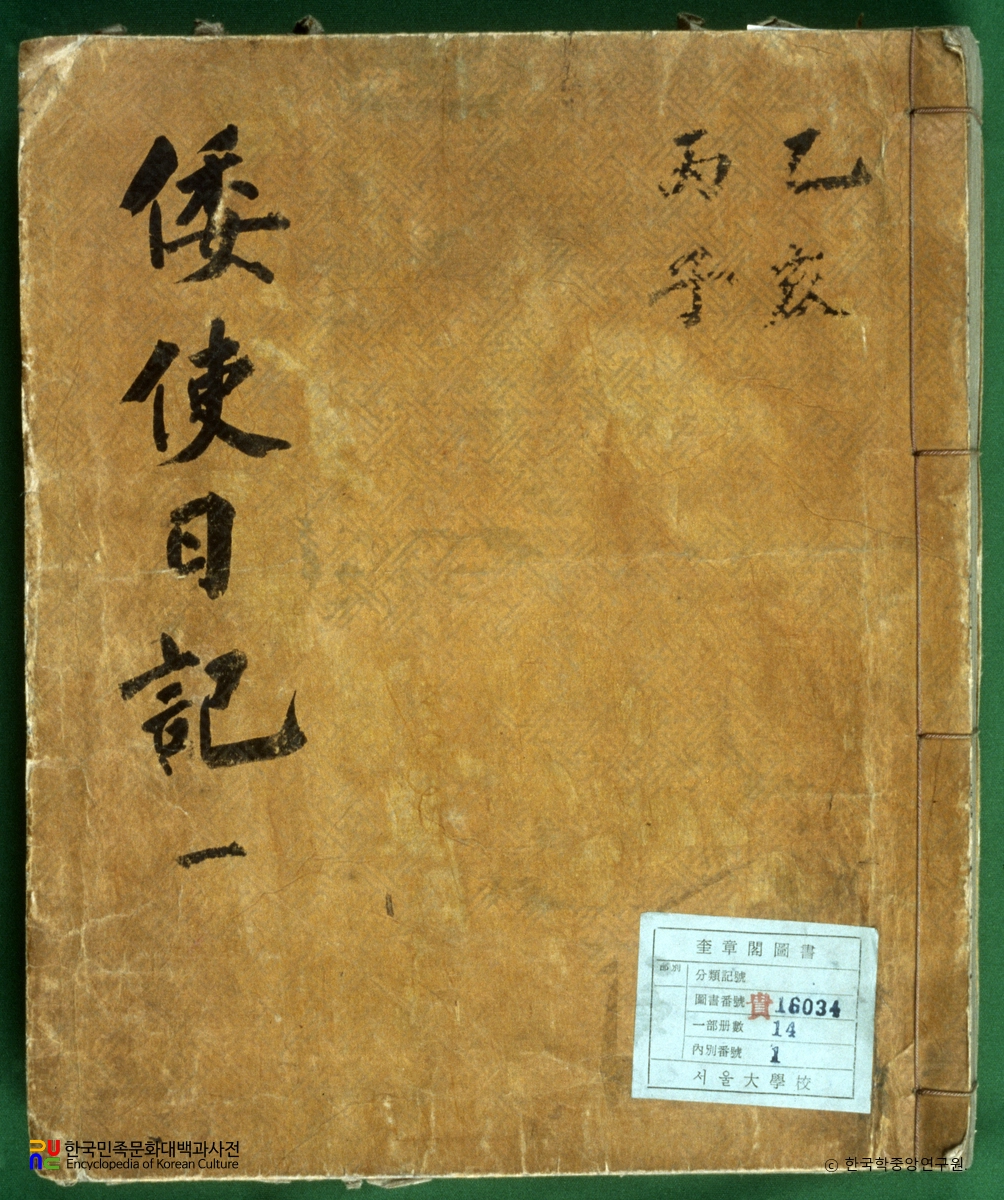 乙亥
丙子
倭使日記 一
奎章閣圖書
部別
分類記號
圖書番號 貴 16034
一部册數 14
內別番號 1
서울大學校
한국민족문화대백과사전
Encyclopedia of Korean Culture
© 한국학중앙연구원